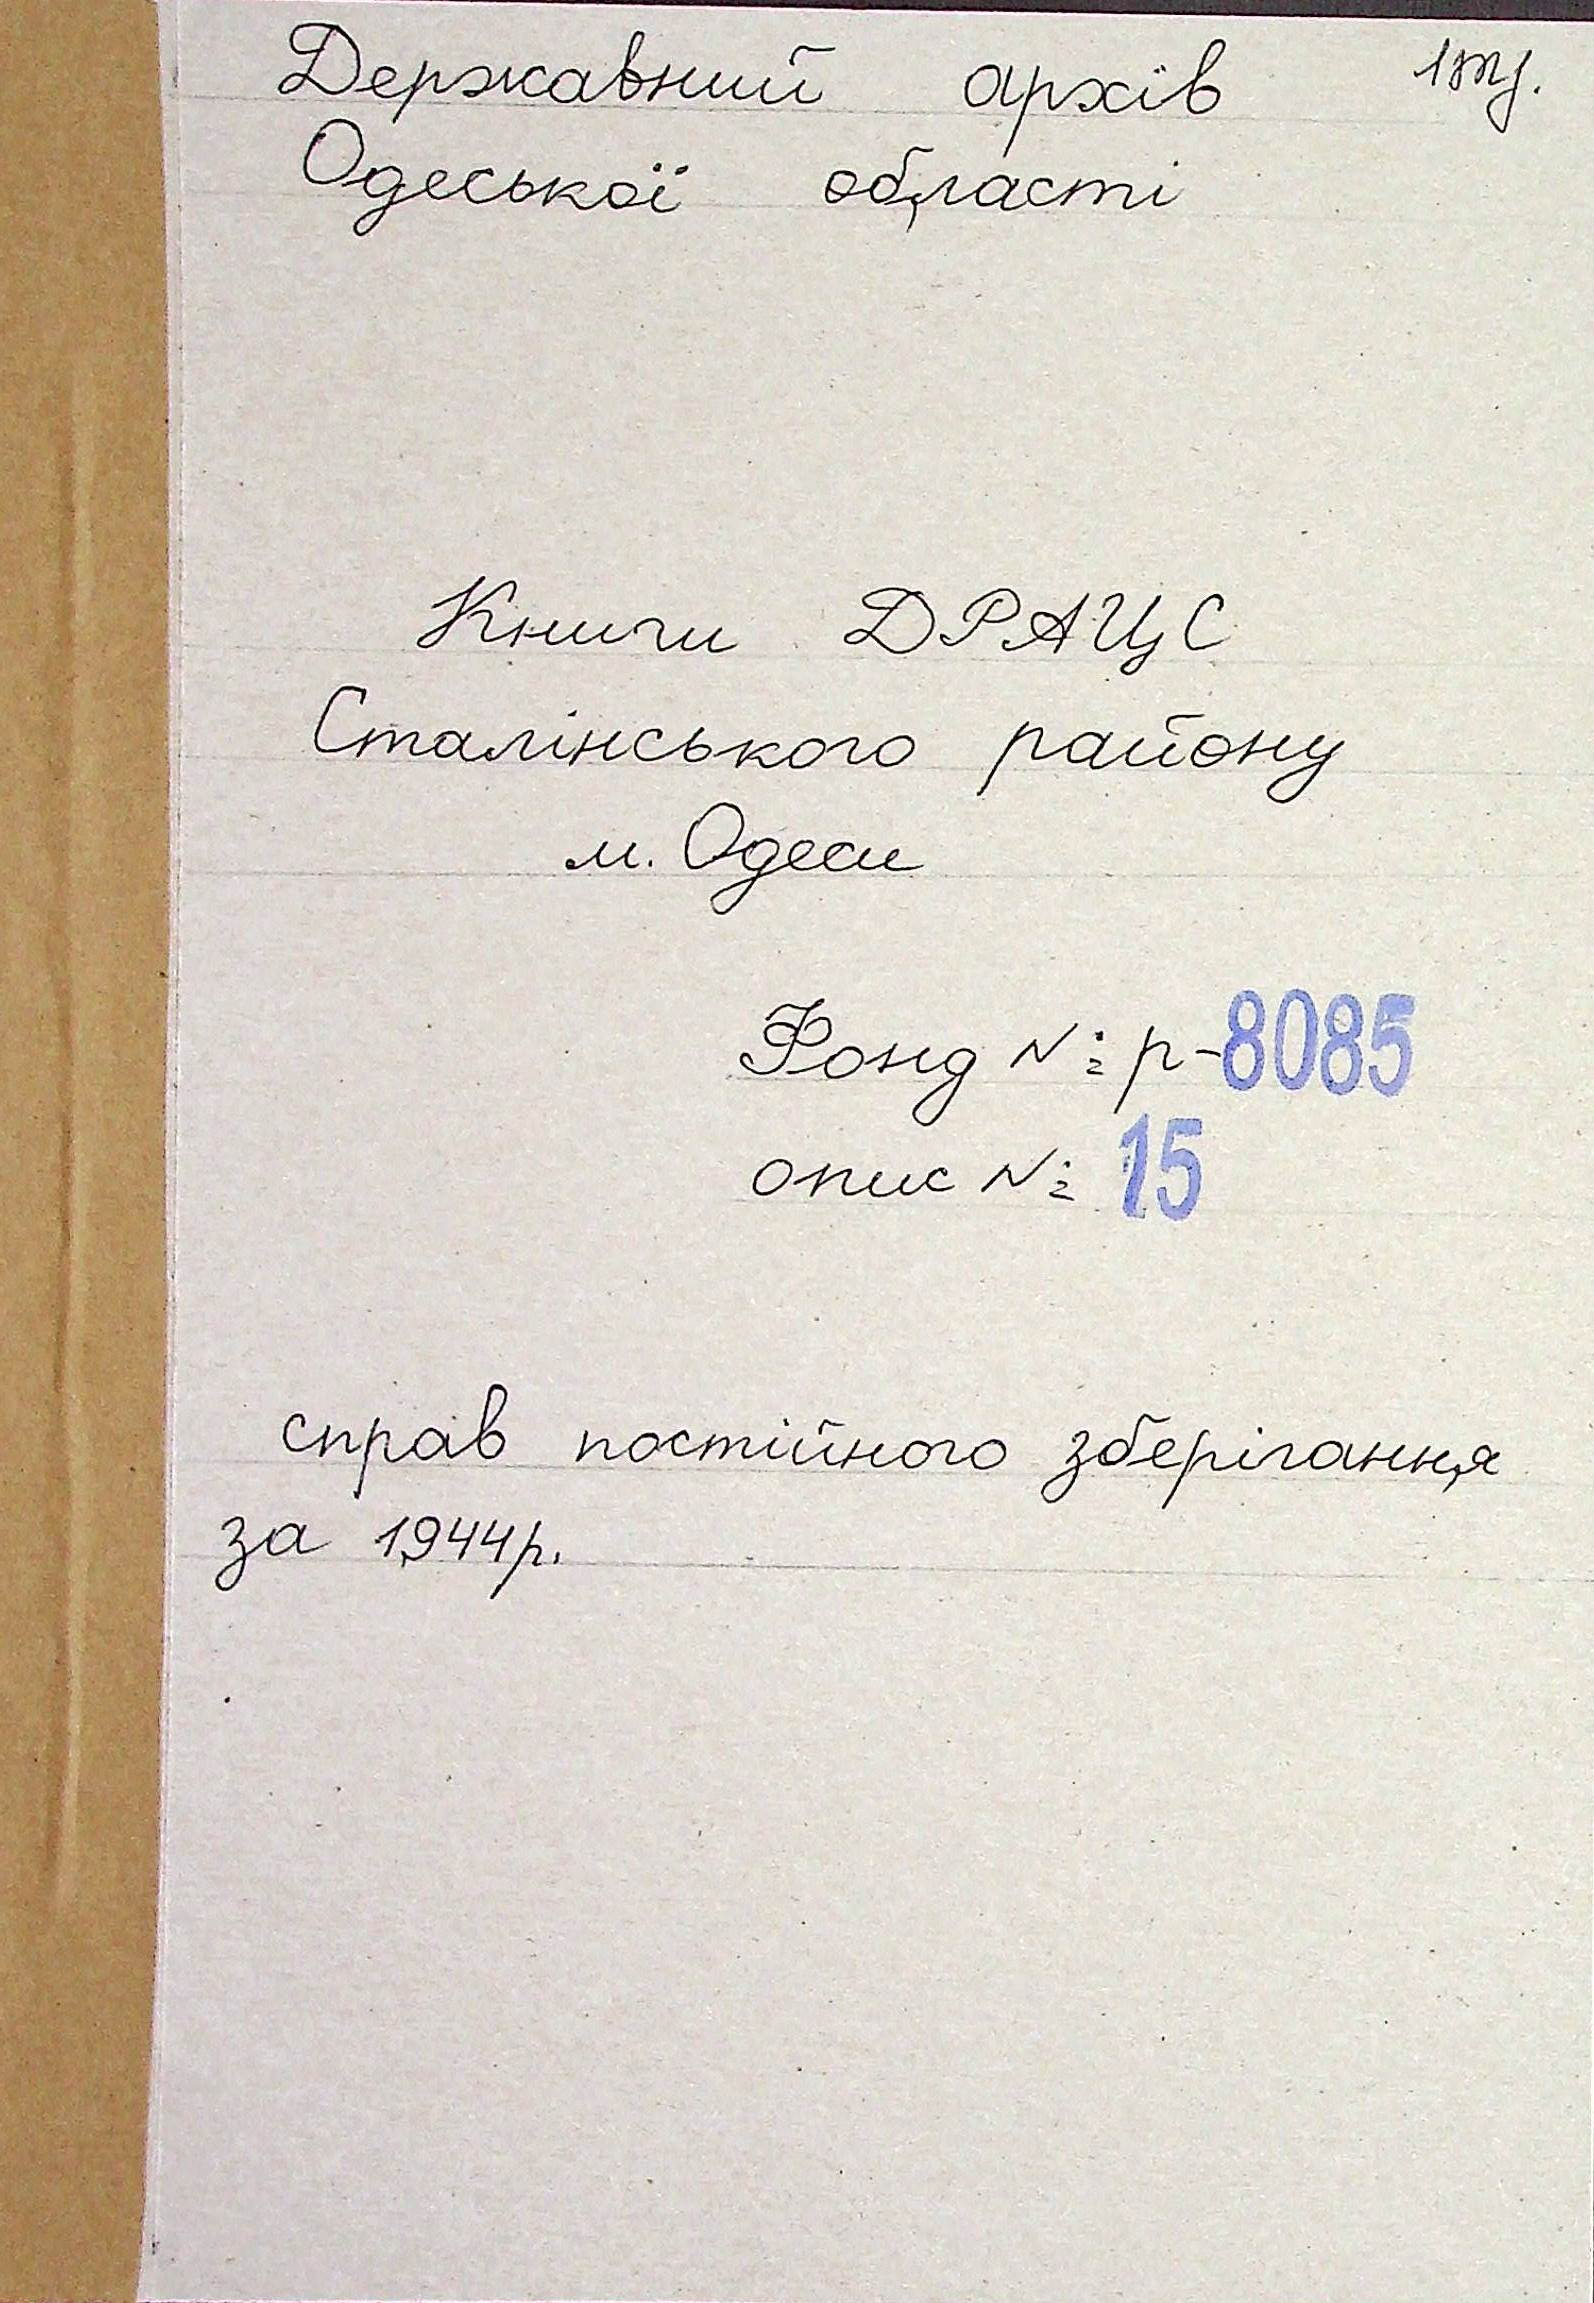 Державний архів 1 тит.
Одеської області
Книги ДРАЦС
Сталінського району
м. Одеси
Фонд № р-8085
опис № 15
справ постійного зберігання
за 1944р.